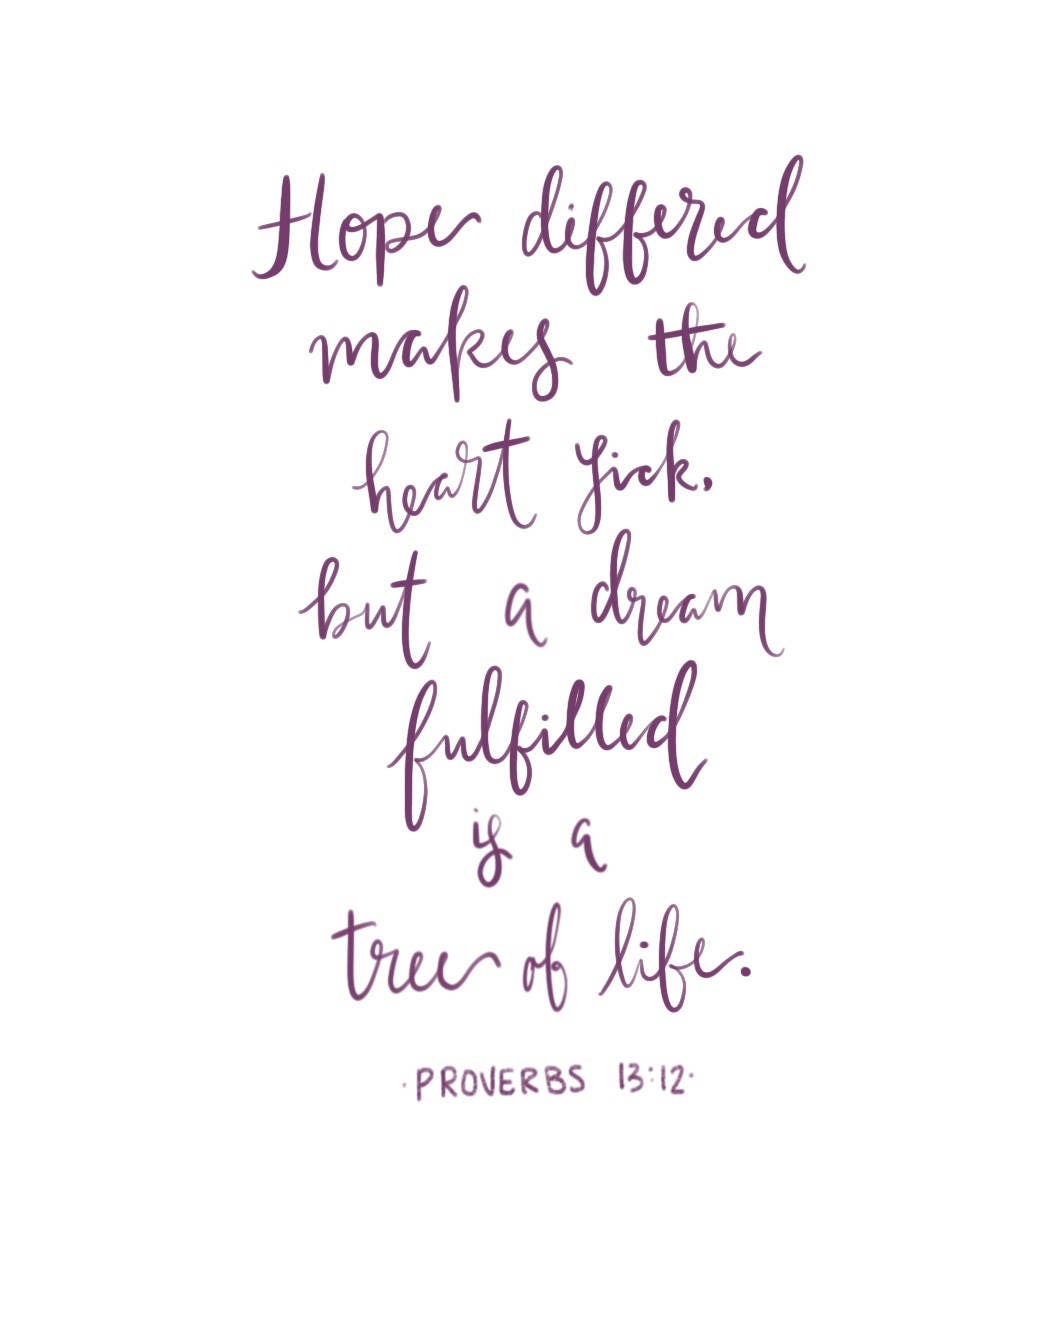 Hope differed
makes the
heart sick,
but a dream
fulfilled
is a
tree of life.
·PROVERBS 13:12·